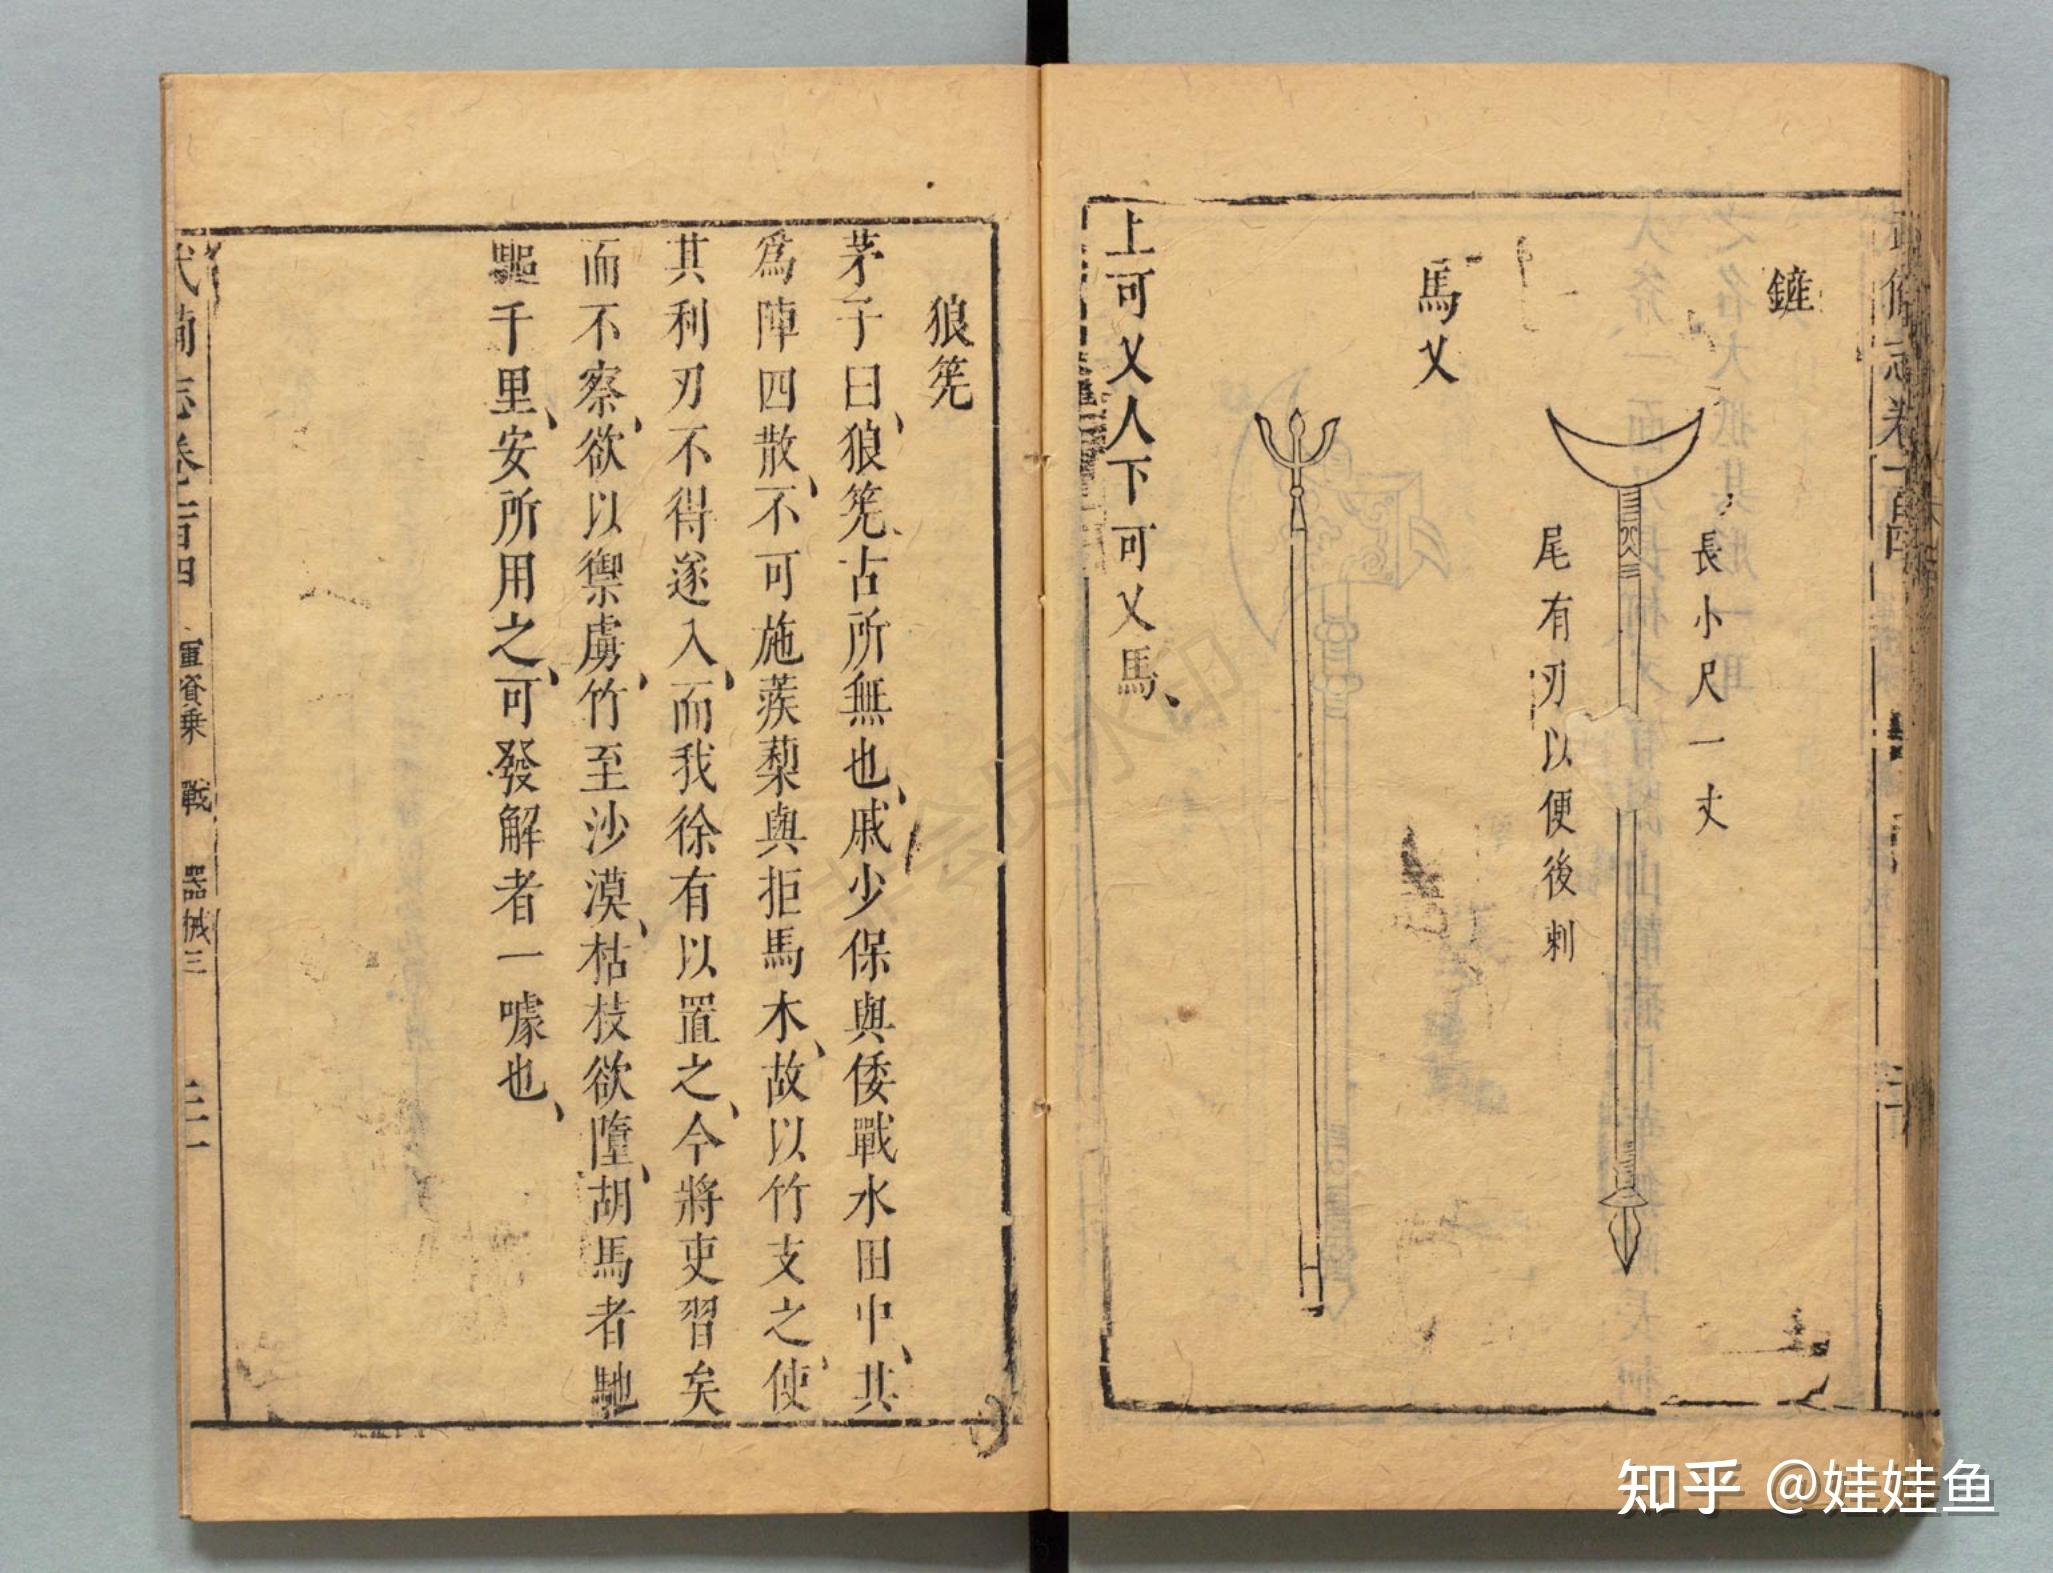 鏟
長小尺一丈
尾有刃以便後刺
馬乂
上可乂人下可乂馬、
狼筅
茅子曰、狼筅、古所無也、戚少保與倭戰水田中、其
為陣四散、不可施蒺藜與拒馬木、故以竹支之、使
其利刃不得遂入、而我徐有以置之、今將吏習矣
而不察、欲以禦虜、竹至沙漠、枯枝欲墮、胡馬者馳
驅千里、安所用之、可發解者一噱也、
武備志卷一百四 軍資乘 戰 器械三 二十一
知乎 @娃娃鱼